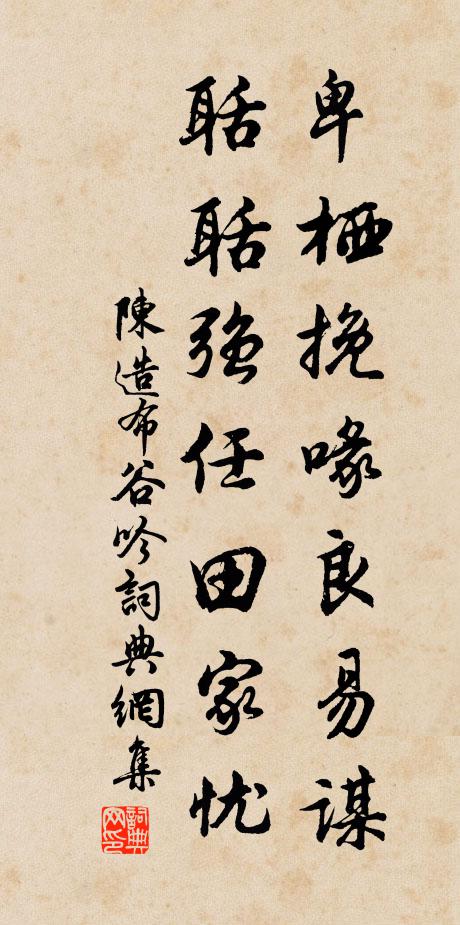 卑栖挽喙良易謀
聒聒强任田家忧
陳造布谷吟詞典網集
詞典网印